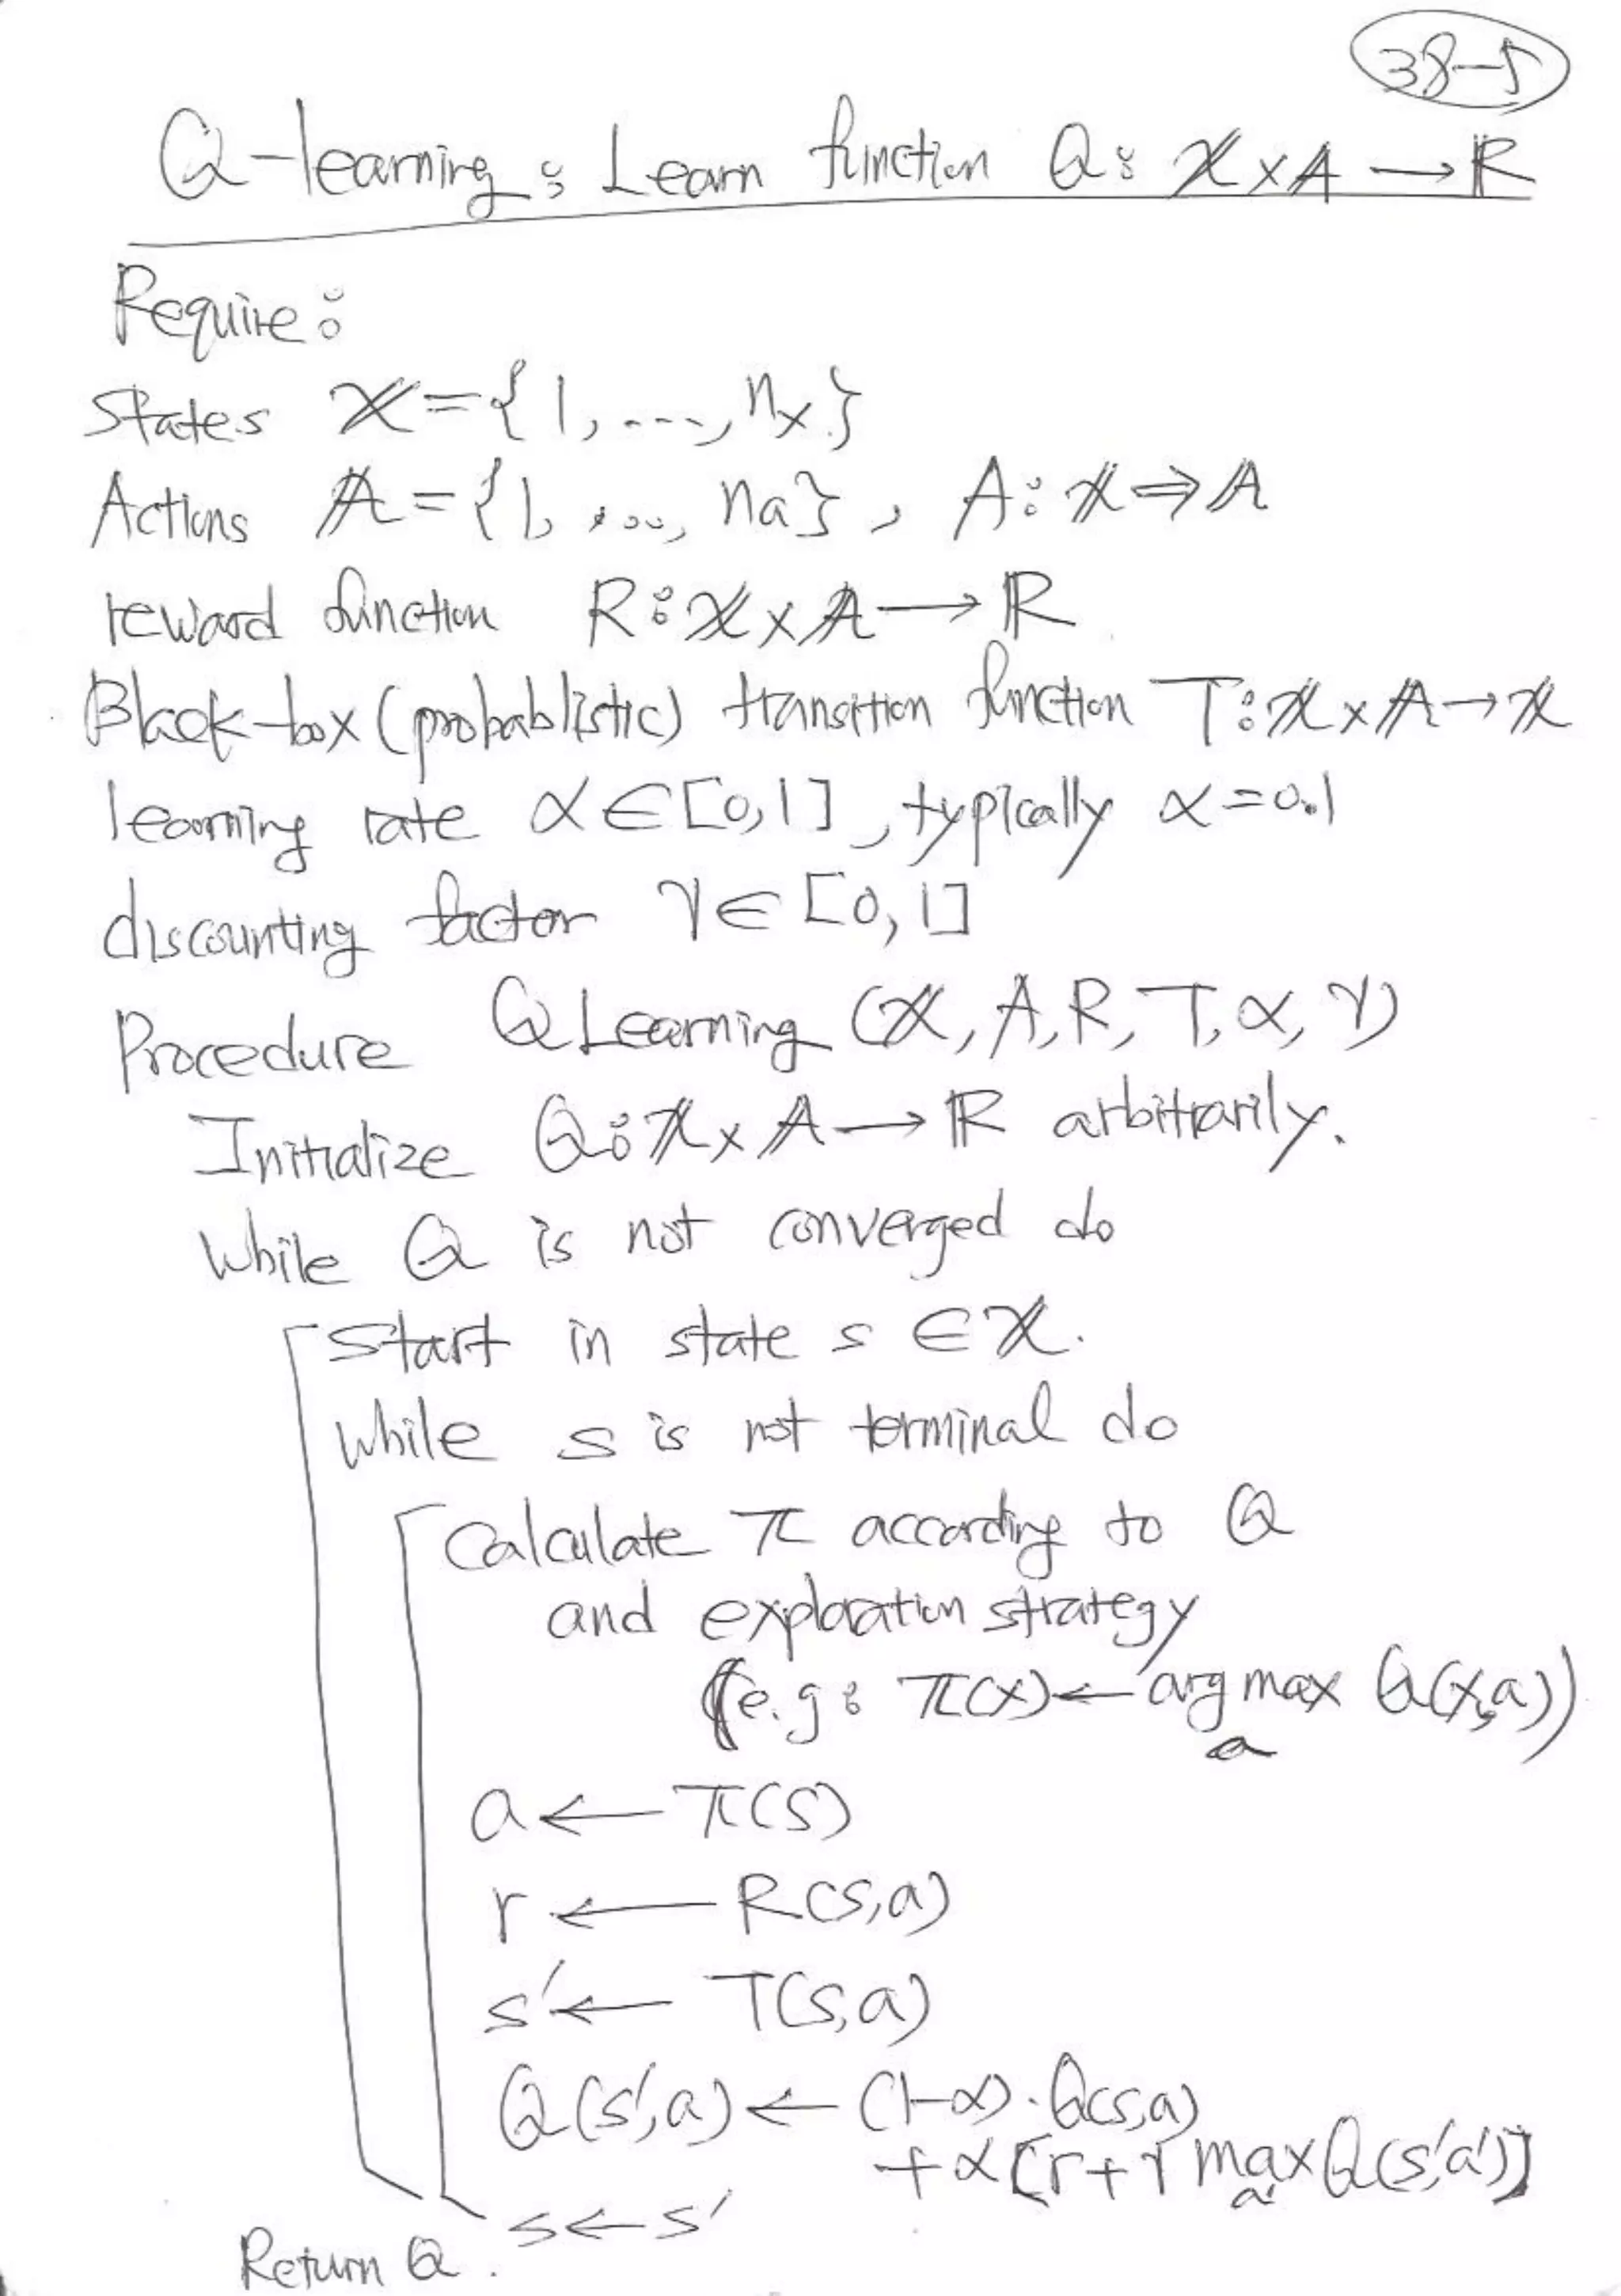 38-5
Q-learning: Learn function Q: 𝕏×𝔸→ℝ
Require:
States 𝕏={1,...,nx}
Actions 𝔸={1,...,na}, A: 𝕏⇒𝔸
reward function R: 𝕏×𝔸→ℝ
Black-box (probablistic) transition function T: 𝕏×𝔸→𝕏
learning rate α∈[0,1], typically α=0.1
discounting factor γ∈[0,1]
Procedure QLearning (𝕏, A, R, T, α, γ)
Initialize Q: 𝕏×𝔸→ℝ arbitrarily.
While Q is not converged do
Start in state s ∈𝕏.
While s is not terminal do
Calculate π according to Q
and exploration strategy
(e.g: π(x)←arg max Q(x,a))
a
a←π(s)
r←R(s,a)
s'←T(s,a)
Q(s',a)←(1-α)·Q(s,a)
+α[r+γ max Q(s',a')]
a'
s←s'
Return Q.